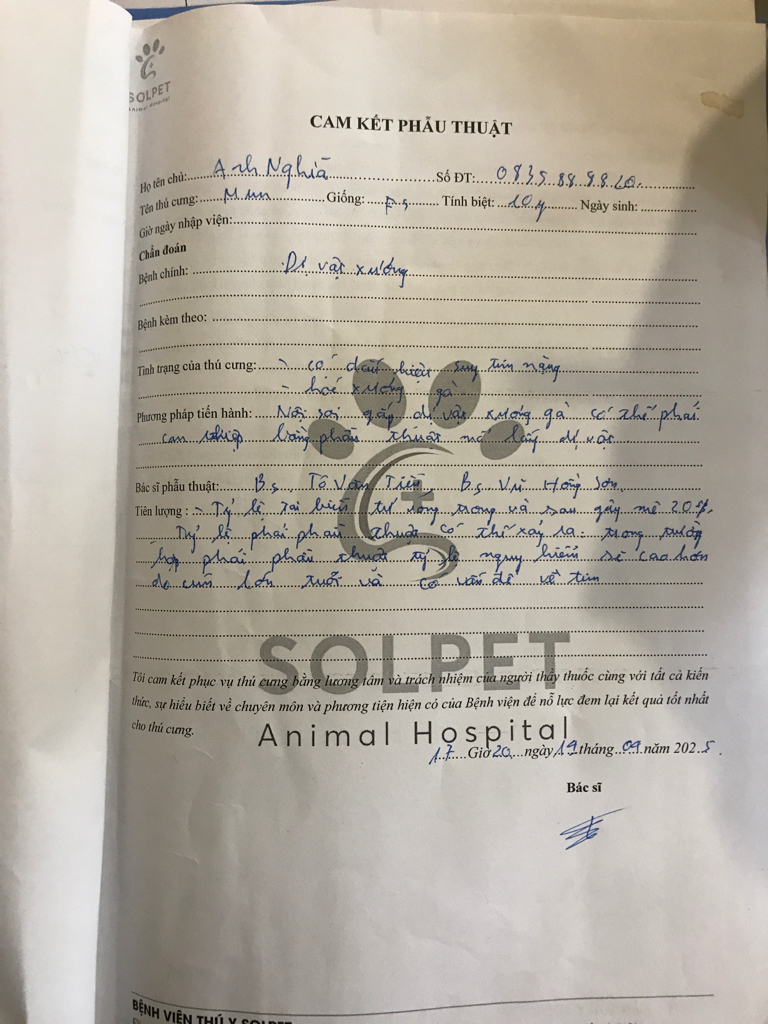 SOLPET
Animal Hospital
CAM KẾT PHẪU THUẬT
Họ tên chủ: Anh Nghĩa Số ĐT: 0835 88 98 20.
Tên thú cưng: Mun Giống: Fs Tính biệt: 10y Ngày sinh:
Giờ ngày nhập viện:
Chẩn đoán
Bệnh chính: Dị vật xương
Bệnh kèm theo:
Tình trạng của thú cưng: - có dấu hiệu suy tim nặng
- hóc xương gà
Phương pháp tiến hành: Nội soi gắp dị vật xương gà có thể phải
can thiệp bằng phẫu thuật mổ lấy dị vật
Bác sĩ phẫu thuật: Bs Tô Văn Tiến, Bs Vũ Hồng Sơn
Tiên lượng : - Tỷ lệ tai biến tử vong trong và sau gây mê 20%.
Tỷ lệ phải phẫu thuật có thể xảy ra. trong trường
hợp phải phẫu thuật tỷ lệ nguy hiểm sẽ cao hơn
do cún lớn tuổi và có vấn đề về tim
SOLPET
Tôi cam kết phục vụ thú cưng bằng lương tâm và trách nhiệm của người thầy thuốc cùng với tất cả kiến
thức, sự hiểu biết về chuyên môn và phương tiện hiện có của Bệnh viện để nỗ lực đem lại kết quả tốt nhất
cho thú cưng.
Animal Hospital
17 Giờ 20 ngày 19 tháng 09 năm 2025.
Bác sĩ
BỆNH VIỆN THÚ Y SOLPET